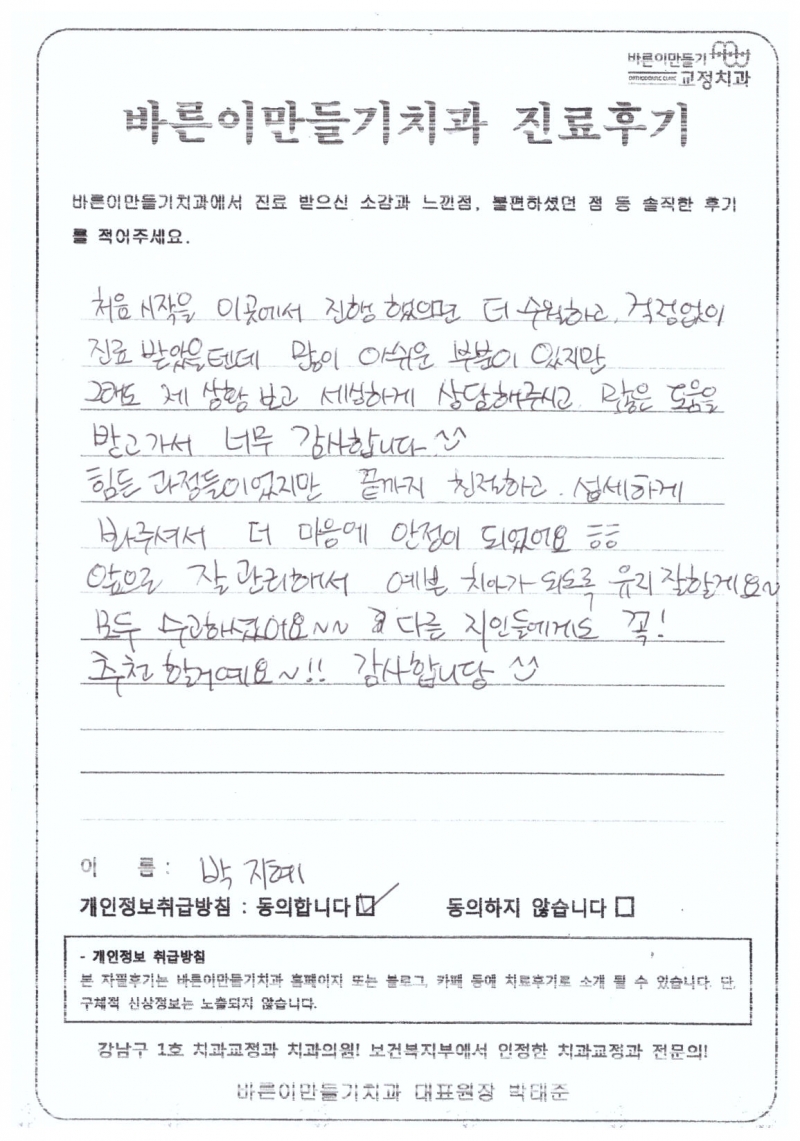 바른이만들기
ORTHODONTIC CLINIC 교정치과
바른이만들기치과 진료후기
바른이만들기치과에서 진료 받으신 소감과 느낀점, 불편하셨던 점 등 솔직한 후기
를 적어주세요.
처음 시작을 이곳에서 진행 했었으면 더 수월하고, 걱정없이
진료 받았을텐데 많이 아쉬운 부분이 있지만
그래도 제 상황 보고 세심하게 상담해주시고 많은 도움을
받고가서 너무 감사합니다 ^^
힘든 과정들이었지만 끝까지 친절하고, 섬세하게
봐주셔서 더 마음에 안정이 되었어요 ㅎㅎ
앞으로 잘 관리해서 예쁜 치아가 되도록 유지 잘할게요~
모두 수고하셨어요~~ 다른 지인들에게도 꼭!
추천 할거예요~!! 감사합니당 ^^
이 름 : 박지혜
개인정보취급방침 : 동의합니다 ☑ 동의하지 않습니다 □
- 개인정보 취급방침
본 자필후기는 바른이만들기치과 홈페이지 또는 블로그, 카페 등에 치료후기로 소개 될 수 있습니다. 단,
구체적 신상정보는 노출되지 않습니다.
강남구 1호 치과교정과 치과의원! 보건복지부에서 인정한 치과교정과 전문의!
바른이만들기치과 대표원장 박태준